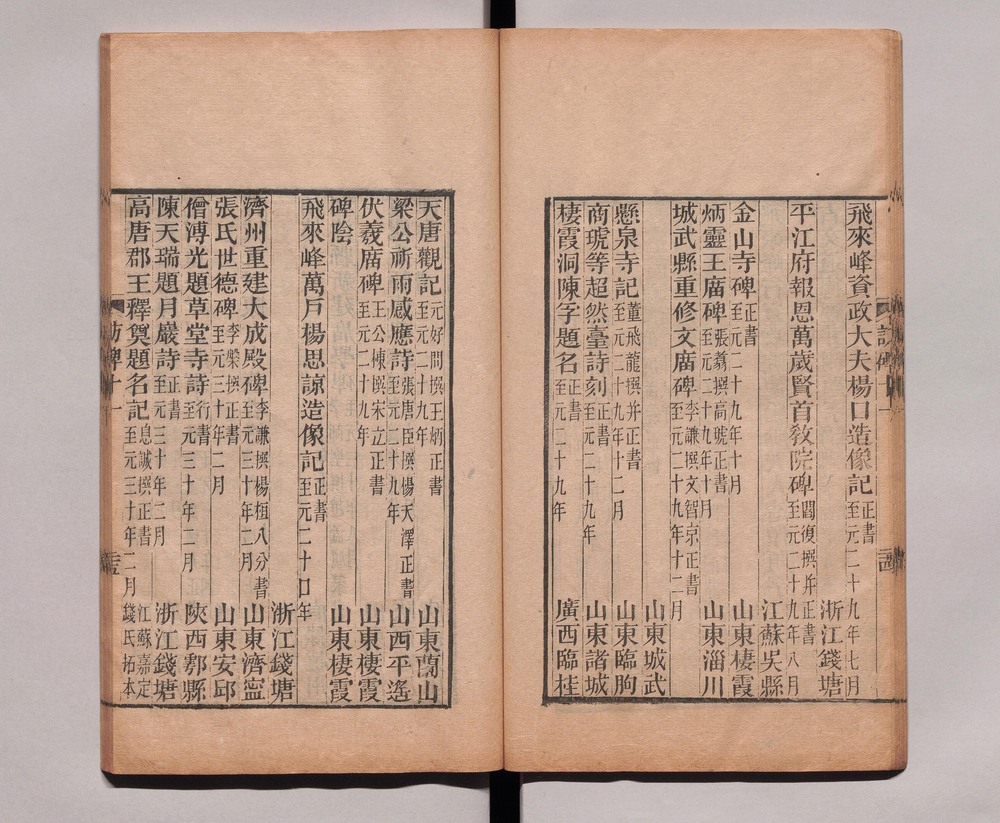 飛來峰資政大夫楊口造像記正書
至元二十九年七月
浙江錢塘
平江府報恩萬歲賢首教院碑閻復撰并正書
至元二十九年八月
江蘇吳縣
金山寺碑正書
至元二十九年十月
山東棲霞
炳靈王廟碑張蓊撰高號正書
至元二十九年十月
山東淄川
城武縣重修文廟碑李謙撰文智京正書
至元二十九年十二月
山東城武
懸泉寺記董飛龍撰并正書
至元二十九年十二月
山東臨朐
商琥等超然臺詩刻正書
至元二十九年
山東諸城
棲霞洞陳孚題名正書
至元二十九年
廣西臨桂
天唐觀記元好問撰王炳正書
至元二十九年
山東蘭山
梁公祈雨感應詩張唐臣撰楊天澤正書
至元二十九年
山西平遙
伏羲廟碑王公悚撰宋立正書
至元二十九年
山東棲霞
碑陰
山東棲霞
飛來峰萬戶楊思諒造像記正書
至元二十口年
浙江錢塘
濟州重建大成殿碑李謙撰楊桓八分書
至元三十年二月
山東濟寧
張氏世德碑李榮撰正書
至元三十年二月
山東安邱
僧溥光題草堂寺詩行書
至元三十年二月
陝西鄠縣
陳天瑞題月巖詩正書
至元三十年二月
浙江錢塘
高唐郡王釋奠題名記息誠撰正書
至元三十年二月
江蘇嘉定
錢氏拓本
訪碑十一